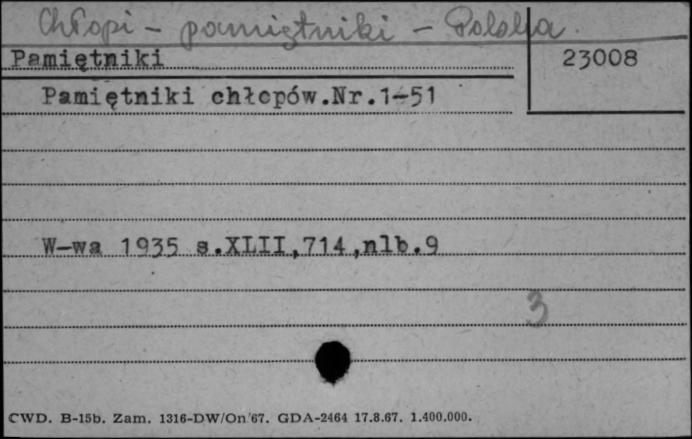 Chłopi - pamiętniki - Polska.
Pamiętniki
23008
Pamiętniki chłopów.Nr.1-51
W-wa 1935 s.XLII,714,nlb.9
3
CWD. B-15b. Zam. 1316-DW/On/67. GDA-2464 17.8.67. 1.400.000.